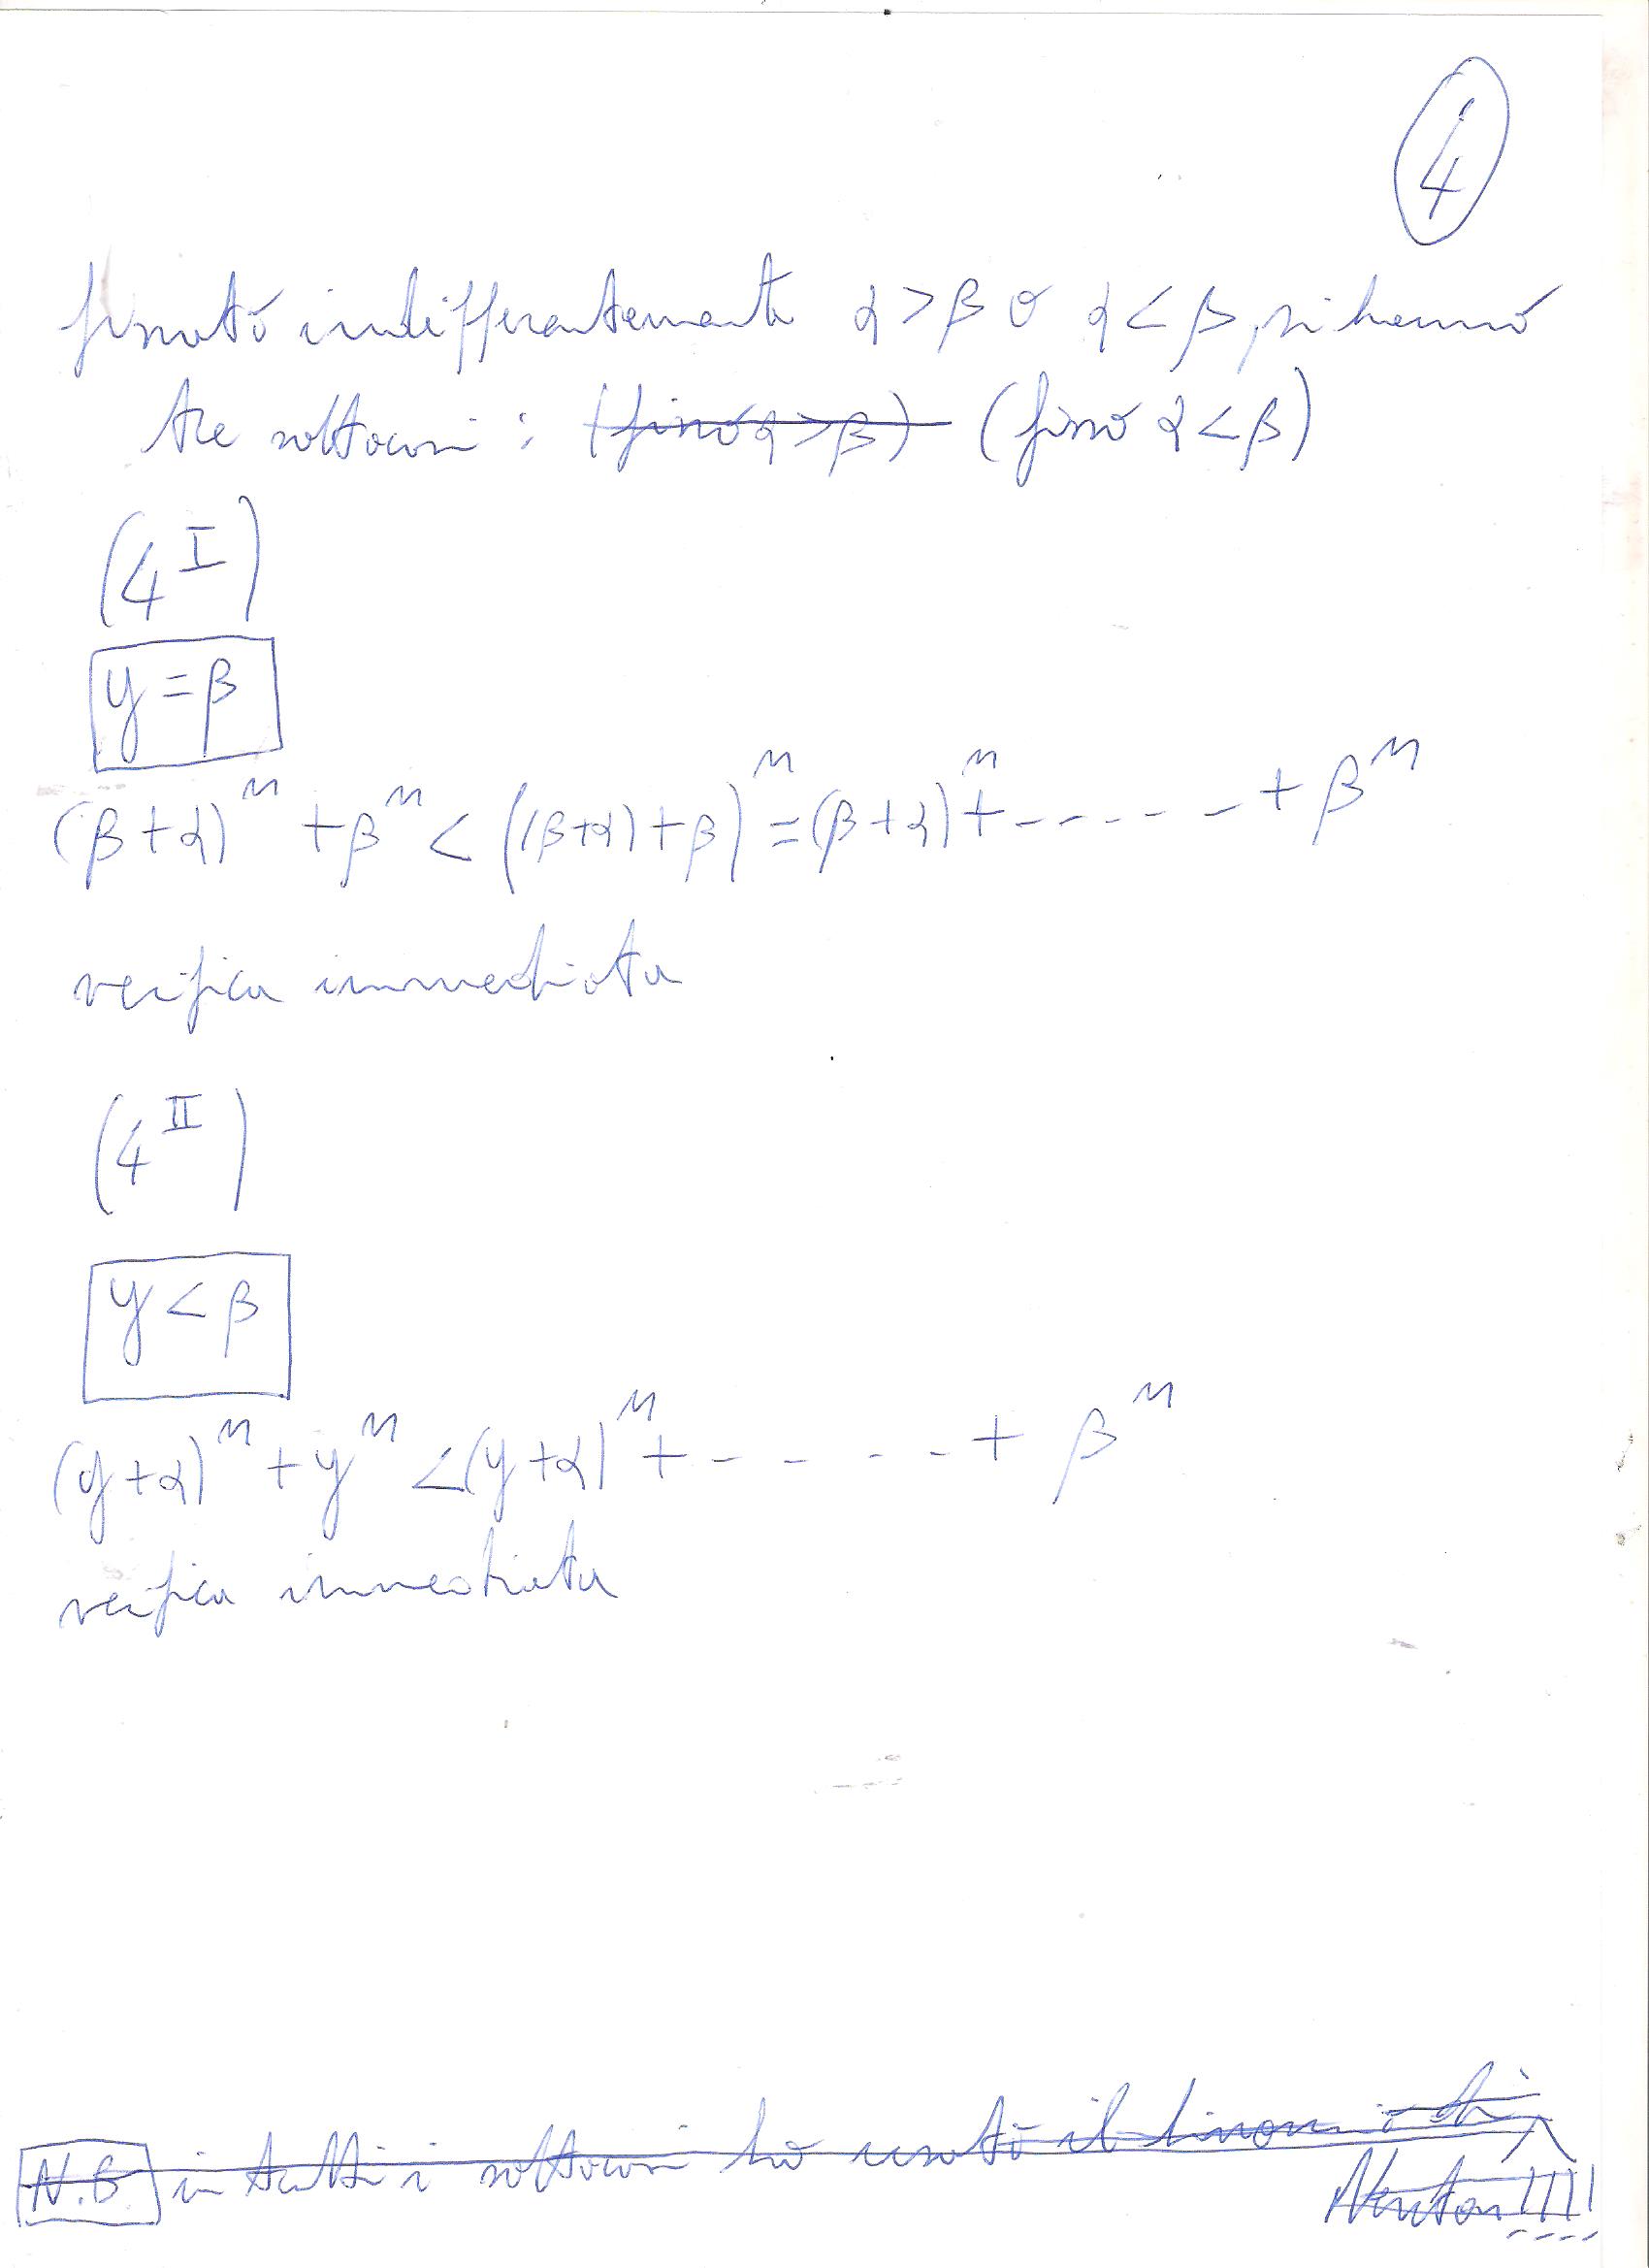 4
fissato indifferentemente α > β o α < β, si hanno
tre sottocasi: (fisso α > β) (fisso α < β)
(4^I)
y = β
(β + α)^n + β^n < ((β + α) + β)^n = (β + α)^n + - - - - - + β^n
verifica immediata
(4^II)
y < β
(y + α)^n + y^n < (y + α)^n + - - - - - + β^n
verifica immediata
N.B. in tutti i sottocasi ho usato il binomio di
Newton!!!!